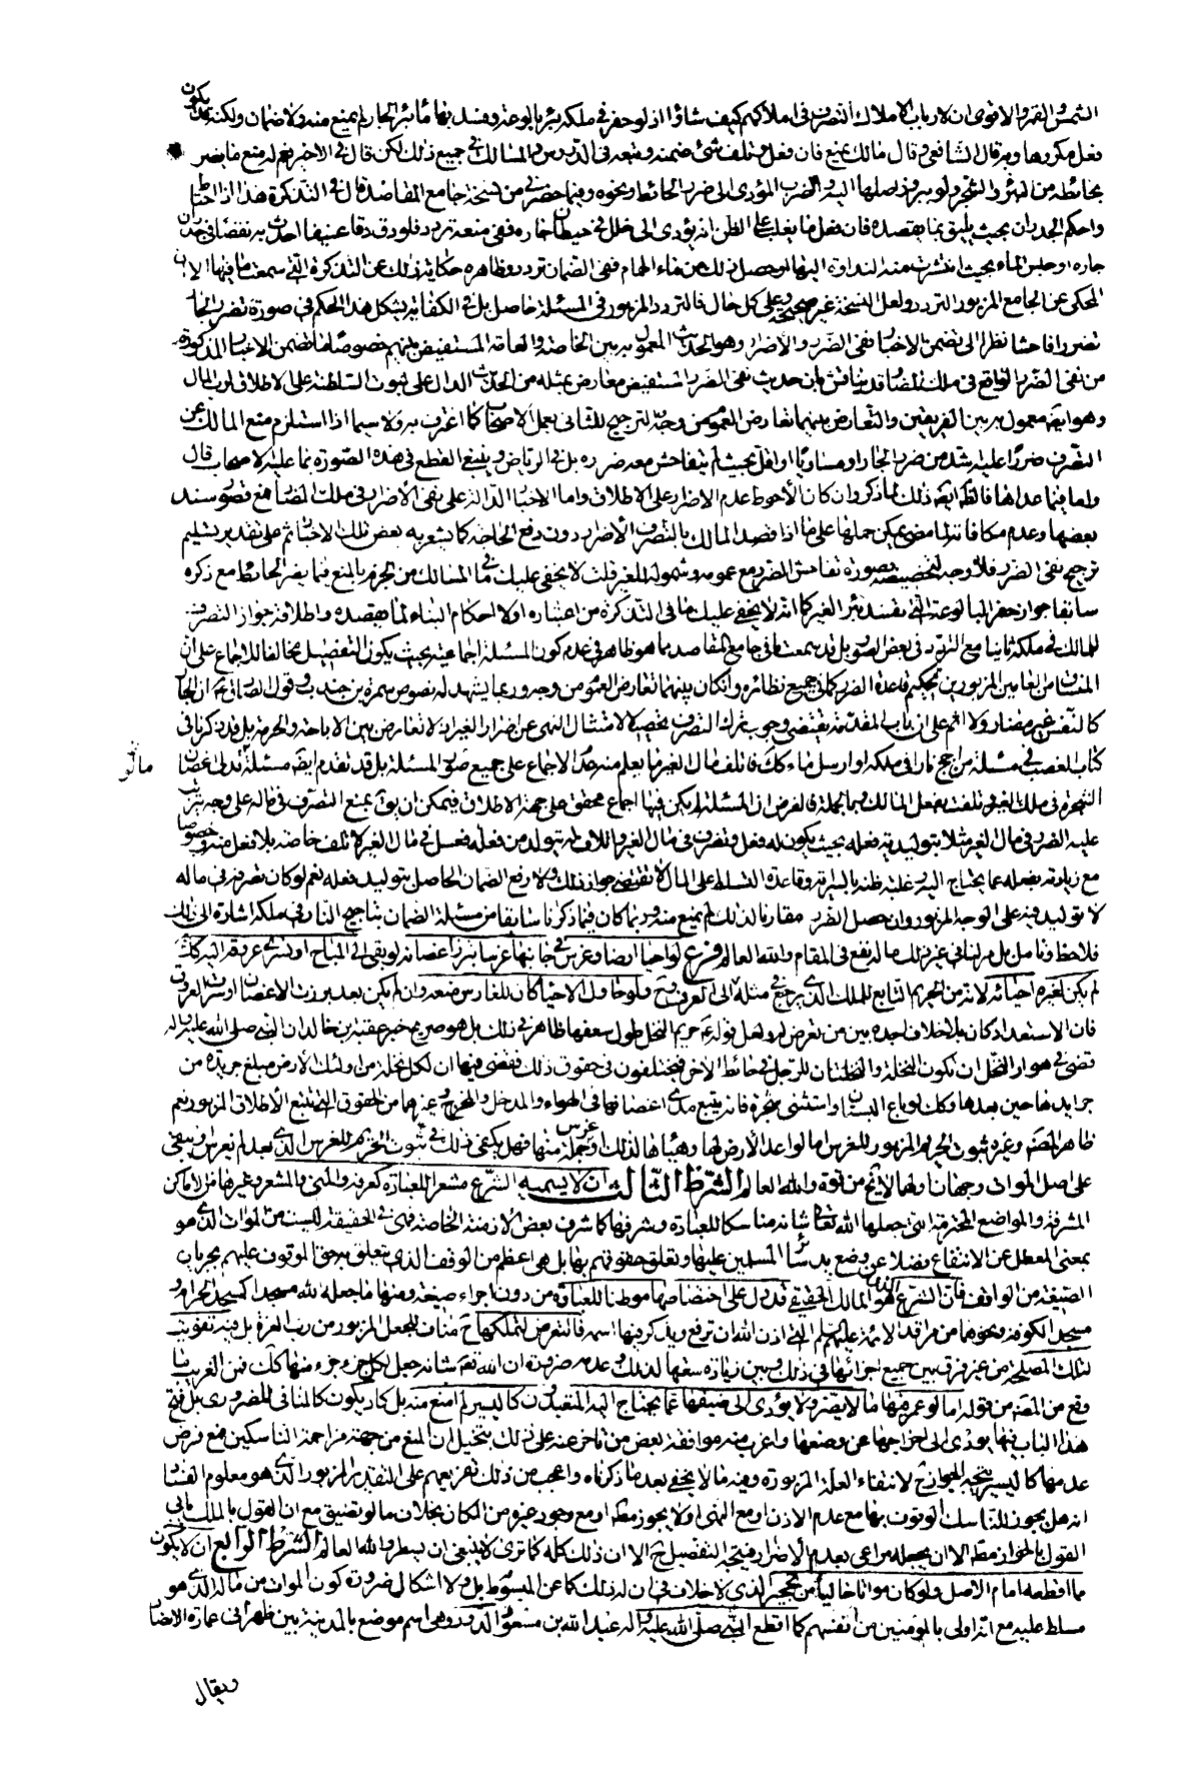 الشمس والقمر والاقوى ان لارباب الاملاك التصرف في املاكهم كيف شاؤا اذ لو حفر في ملكه بئر بالوعة وفسد بها ماء بئر الجار لم يمنع منه ولا ضمان ولكنه يكون قد
فعل مكروها وبه قال الشافعي وقال مالك يمنع فان فعل وتلف شئ ضمنه وتبعه في الدروس والمسالك في جميع ذلك لكن قال في الاخير نعم له منع ما يضر
بحائطه من البئر والشجر ولو ببروز اصلها اليه والضرب المؤدي الى ضرر الحائط ونحوه وفيما حضرني من نسخة جامع المقاصد قال في التذكرة هذا اذا احتاط
واحكم الجدران بحيث يليق بما يقصده فان فعل ما يغلب على الظن انه يؤدي الى خلل في حيطان جاره ففي منعه تردد فلو دق دقا عنيفا احدث به نقضا في جدران
جاره او حبس الماء بحيث انتشرت منه النداوة اليها او حصل ذلك من ماء الحمام ففي الضمان تردد وظاهره حكاية ذلك عن التذكرة التي سمعت ما فيها الا ان
المحكي عن الجامع المزبور التردد ولعل النسخة غير صحيحة وعلى كل حال فالتردد المزبور في المسئلة حاصل بل في الكفاية يشكل هذا الحكم في صورة تضرر الجار
تضررا فاحشا نظرا الى تضمن الاخبار نفي الضرر والاضرار وهو الحديث المعمول به بين الخاصة والعامة المستفيض بينهم خصوصا ما تضمن الاخبار المذكورة
من نفي الضرر الواقع في ملك المضار قد يناقش بان حديث نفي الضرر المستفيض معارض بمثله من الحديث الدال على ثبوت السلطنة على الاطلاق لرب المال
وهو ايضا معمول به بين الفريقين والتعارض بينهما تعارض العموم من وجه والترجيح للثاني بعمل الاصحاب كما اعترف به ولا سيما اذا استلزم منع المالك عن
التصرف ضررا عليه اشد من ضرر الجار او مساويا او اقل بحيث لم يتفاحش معه ضرره بل في الرياض وينبغي القطع في هذه الصورة بما عليه الاصحاب قال
واما فيما عداها فالظ ايضا ذلك لما ذكر وان كان الاحوط عدم الاضرار على الاطلاق واما الاخبار الدالة على نفي الاضرار في ملك المضار فمع قصور سند
بعضها وعدم مكافاته لما مضى يمكن حملها على ما اذا قصد المالك بالتصرف الاضرار دون رفع الحاجة كما يشعر به بعض تلك الاخبار ثم على تقدير تسليم
ترجيح نفي الضرر فلا وجه لتخصيصه بصورة تفاحش الضرر مع عمومه وشموله للغير قلت لا يخفى عليك ما في المسالك من الجزم بالمنع فيما يضر الحائط مع ذكره
سابقا جواز حفر البالوعة التي تفسد بئر الغير كما انه لا يخفى عليك ما في التذكرة من اعتباره اولا احكام البناء لما يقصده واطلاقه جواز التصرف
للمالك في ملكه ثانيا مع التردد في بعض الصور بل قد سمعت ما في جامع المقاصد مما هو ظاهر في عدم كون المسئلة اجماعية بحيث يكون التفصيل مخالفا للاجماع على ان
المنساق من لغا بين المزبورين تحكيم قاعدة الضرر كما في جميع نظائره وان كان بينهما تعارض العموم من وجه وربما يشهد له نصوص سمرة بن جندب وقول الصادق ان الجار
كالنفس غير مضار ولا اثم على ان باب المقدمة يقتضي وجوب ترك التصرف تحصيلا لامتثال النهي عن اضرار الغير اذ لا تعارض بين الاباحة والحرمة بل قد ذكرنا في
كتاب الغصب في مسئلة من اجج نارا في ملكه او ارسل ماء كك فاتلف مال الغير ما يعلم منه عدم الاجماع على جميع صور المسئلة بل قد تقدم ايضا مسئلة تدلي اغصان
ما لو
الشجرة في ملك الغير وتلفت بفعل المالك وبالجملة فالغرض ان المسئلة لم يكن فيها اجماع محقق على جهة الاطلاق فيمكن ان يق بمنع التصرف في ماله على وجه يترتب
عليه الضرر في مال الغير مثلا بتوليديه فعله بحيث يكون له فعل وتصرف في مال الغير واتلاف له يتولد من فعله فعل في مال الغير لا تلف خاصة بلا فعل منه خصوصا
مع زيادته بفعله عما يحتاج اليه وغلبة ظنه بالسراية وقاعدة التسلط على المال لا تقتضي جواز ذلك ولا رفع الضمان الحاصل بتوليد فعله نعم لو كان تصرفه في ماله
لا توليد فيه على الوجه المزبور وان حصل الضرر مقارنا لذلك لم يمنع منه وربما كان فيما ذكرناه سابقا من مسئلة الضمان بتاجيج النار في ملكه اشارة الى ذلك
فلاحظ وتامل بل مر لنا في غير ذلك ما له نفع في المقام والله العالم فرع لو احيا ارضا وغرس في جانبها غرسا تبرز اغصانه لو بقي الى المباح او تسري عروقه اليه كك
لم يكن لغيره احيائه لانه من الحريم التابع للملك الذي يرجع في مثله الى العرف وح فلو حاول الاحياء كان للغارس منعه وان لم يكن بعد برزت الاغصان او سرت العروق
فان الاستعداد كان بلا خلاف اجده بين من تعرض له ولعل قوله ع حريم النخل طول سعفها ظاهر في ذلك بل هو صريح خبر عقبة بن خالد ان النبي صلى الله عليه وآله
قضى في هوار النخل ان تكون النخلة والنخلتان للرجل في حائط الاخر فيختلفون في حقوق ذلك فقضى فيها ان لكل نخلة من اولئك من الارض مبلغ جريدة من
جرايدها حين بعدها وكذا لو باع البستان واستثنى شجرة فانه يتبع مدى اغصانها في الهواء والمدخل والمخرج وغيرهما من الحقوق التي تتبع الاطلاق المزبور نعم
ظاهر المصنف وغيره ثبوت الحريم المزبور للغرس اما لو اعد الارض لها وهيأها لذلك او غرس جملة منها فهل يكفي ذلك في ثبوت الحريم للغرس الذي بعد لم يغرس او يبقى
على اصل الموات وجهان اولهما لا يخ من قوة والله العالم الشرط الثالث ان لا يسميه الشرع مشعرا للعبادة كعرفة ومنى والمشعر وغيرها من الاماكن
المشرفة والمواضع المحترمة التي جعلها الله تعالى شانه مناسكا للعبادة وشرفها كما شرف بعض الازمنة الخاصة فهي في الحقيقة ليست من الموات الذي هو
بمعنى المعطل عن الانتفاع فضلا عن وضع يد سائر المسلمين عليها وتعلق حقوقهم بها بل هي اعظم من الوقف الذي يتعلق به حق الموقوف عليهم بجريان
الصيغة من الواقف فان الشرع الذي هو المالك الحقيقي قد دل على اختصاصها موطنا للعبادة من دون اجراء صيغة ومنها ما جعله لله مسجدا كمسجد الحرام و
مسجد الكوفة ونحوهما من مراقد الائمة عليهم السلام التي اذن الله ان ترفع ويذكر فيها اسمه فالتعرض لتملكها ح مناف للجعل المزبور من رب العزة بل فيه تفويت
لتلك المصلحة من غير فرق بين جميع اجزائها في ذلك وبين زيادة سعتها لذلك وعدمه ضرورة ان الله تعالى شانه جعل لكل جزء وجزء منها كك فمن الغريب ما
وقع من المصنف من قوله اما لو عمر فيها ما لا يضر ولا يؤدي الى ضيقها عما يحتاج اليه المتعبدون كاليسير لم امنع منه بل كاد يكون كالمنافي للضروري بل فتح
هذا الباب فيها يؤدي الى اخراجها عن وضعها واغرب منه موافقة بعض من تاخر عنه على ذلك بتخيل ان المنع من جهة مزاحمة الناسكين فمع فرض
عدمها كاليسير يتجه الجواز ح لانتفاء العلة المزبورة وفيه ما لا يخفى بعد ما ذكرناه واعجب من ذلك تفريعهم على التقدير المزبور الذي هو معلوم الفساد
انه هل يجوز للناسك الوقوف بها مع عدم الاذن او مع النهي او لا يجوز مطلقا او مع وجود غيره من المكان بخلاف ما لو تضيق مع ان القول بالملك يابى
القول بالجواز مطلقا الا ان يجعله مراعى بعدم الاضرار فيتجه التفصيل ح الا ان ذلك كله كما ترى لا ينبغي ان يسطر والله العالم الشرط الرابع ان لا يكون
مما اقطعه امام الاصل ولو كان مواتا خاليا من تحجير الذي لا خلاف في ان له ذلك كما عن المبسوط بل ولا اشكال ضرورة كون الموات من ماله الذي هو
مسلط عليه مع انه اولى بالمؤمنين من انفسهم كما اقطع النبي صلى الله عليه وآله عبد الله بن مسعود الدور وهي اسم موضع بالمدينة بين ظهراني عمارة الانصار
ويقال